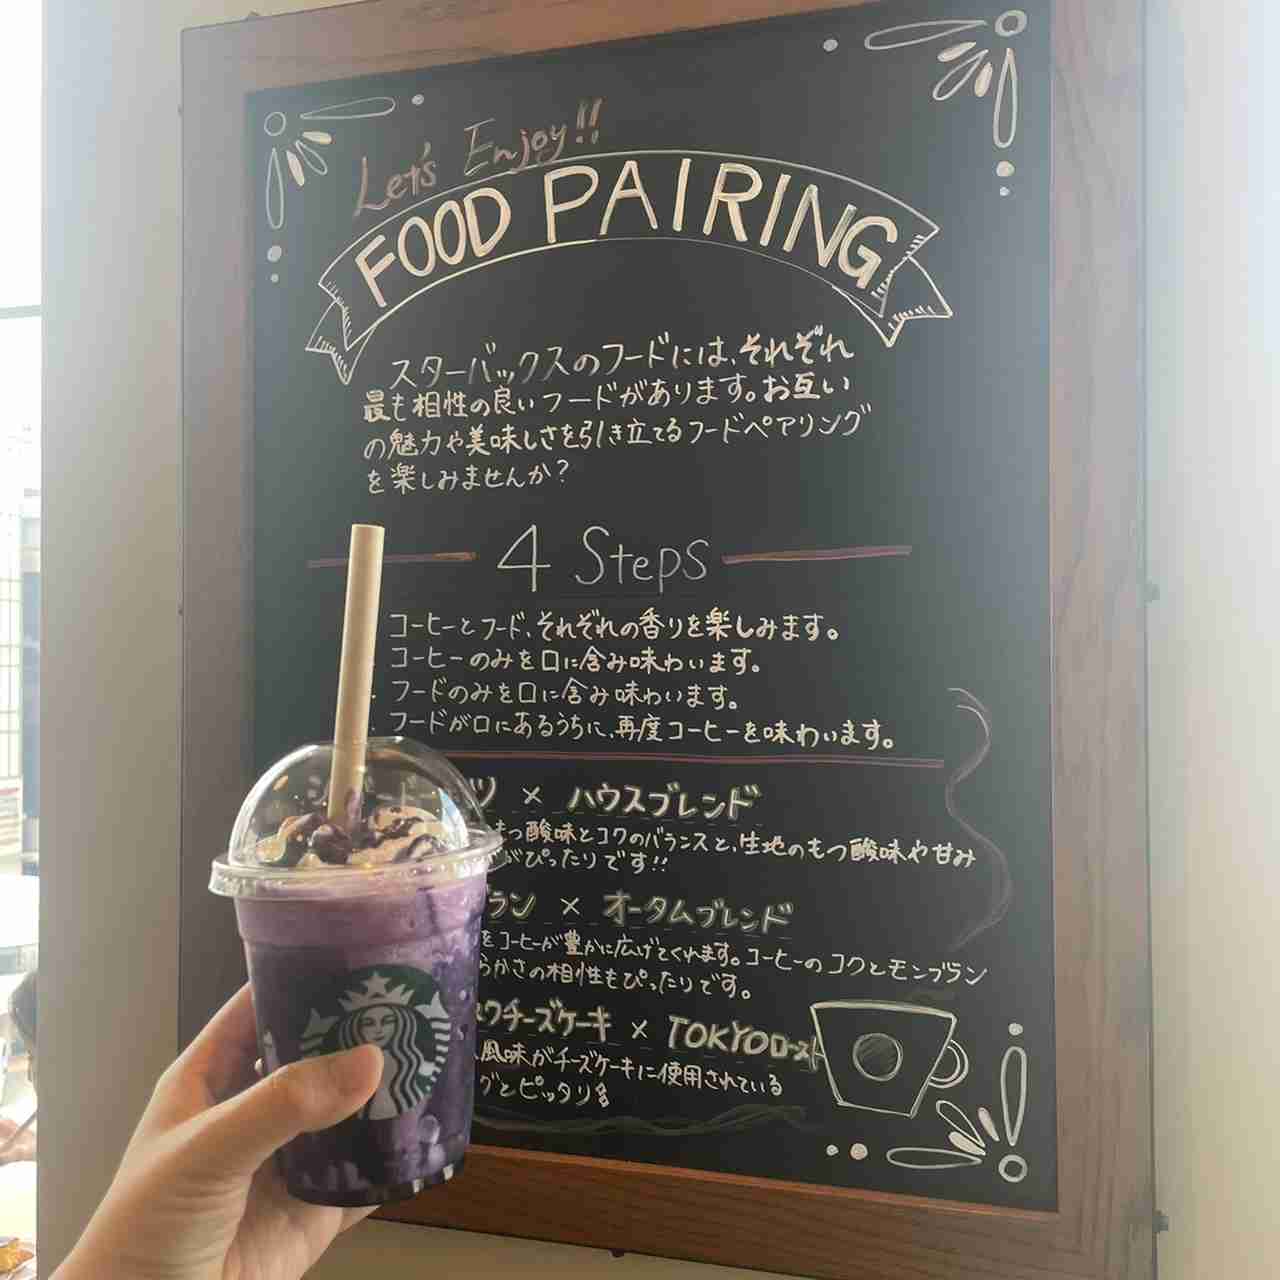 Let's Enjoy!!
FOOD PAIRING
スターバックスのフードには、それぞれ
最も相性の良いフードがあります。お互い
の魅力や美味しさを引き立てるフードペアリング
を楽しみませんか?
4 Steps
コーヒーとフード、それぞれの香りを楽しみます。
コーヒーのみを口に含み味わいます。
フードのみを口に含み味わいます。
フードが口にあるうちに、再度コーヒーを味わいます。
ツ × ハウスブレンド
もつ酸味とコクのバランスと、生地のもつ酸味や甘み
がぴったりです!!
ラン × オータムブレンド
をコーヒーが豊かに広げてくれます。コーヒーのコクとモンブラン
らかさの相性もぴったりです。
クチーズケーキ × TOKYOロースト
風味がチーズケーキに使用されている
グとピッタリ